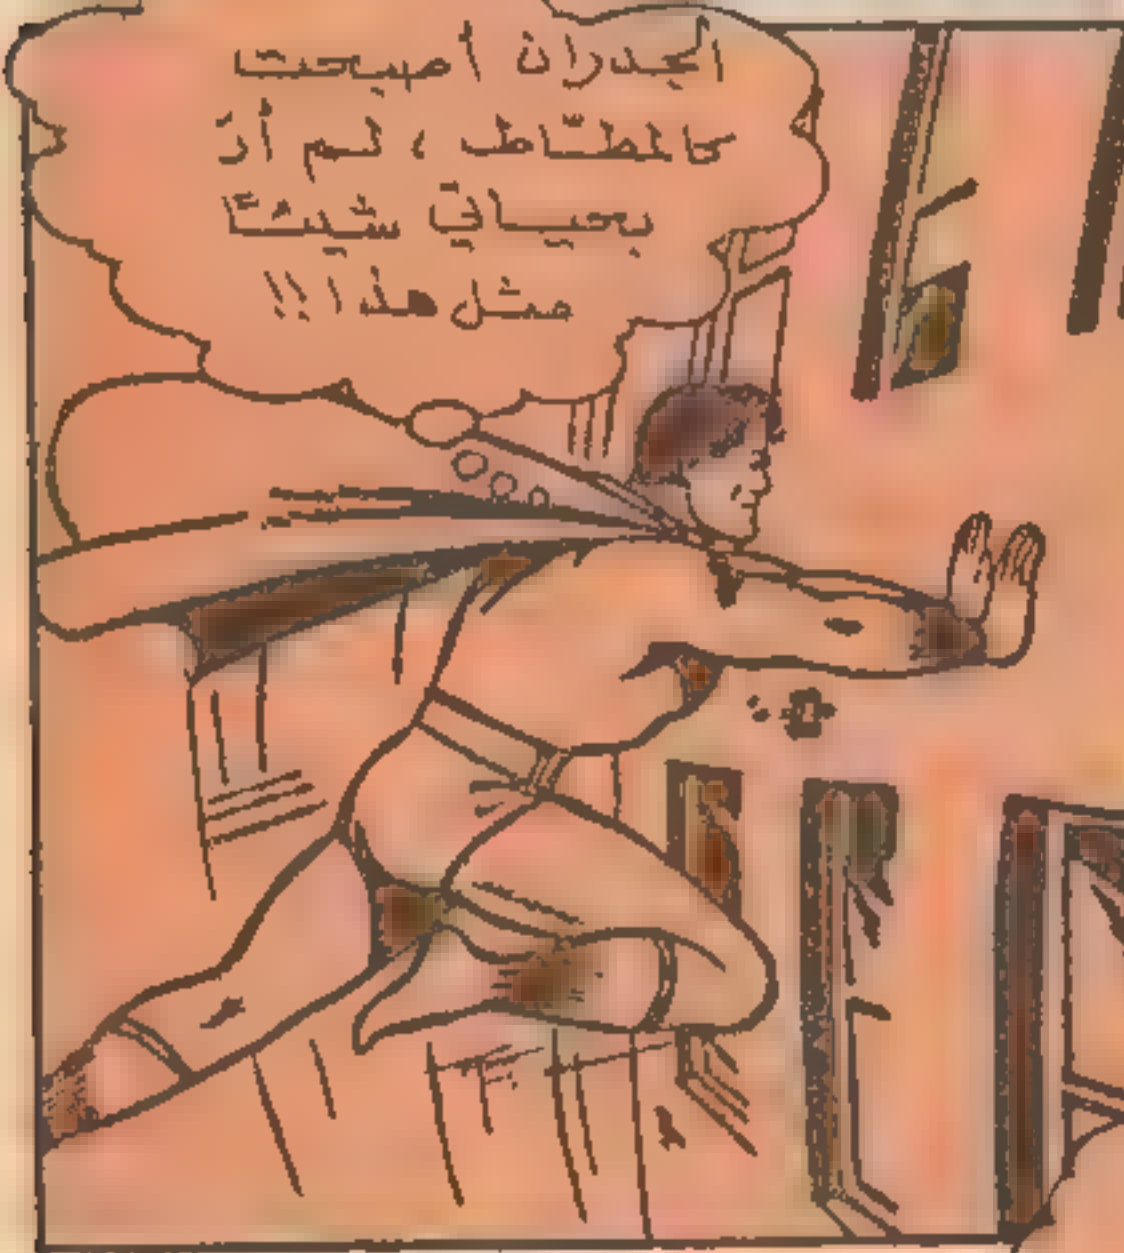 الجدران أصبحت
كالمطّاط، لم أرَ
بحياتي شيئًا
مثل هذا!!